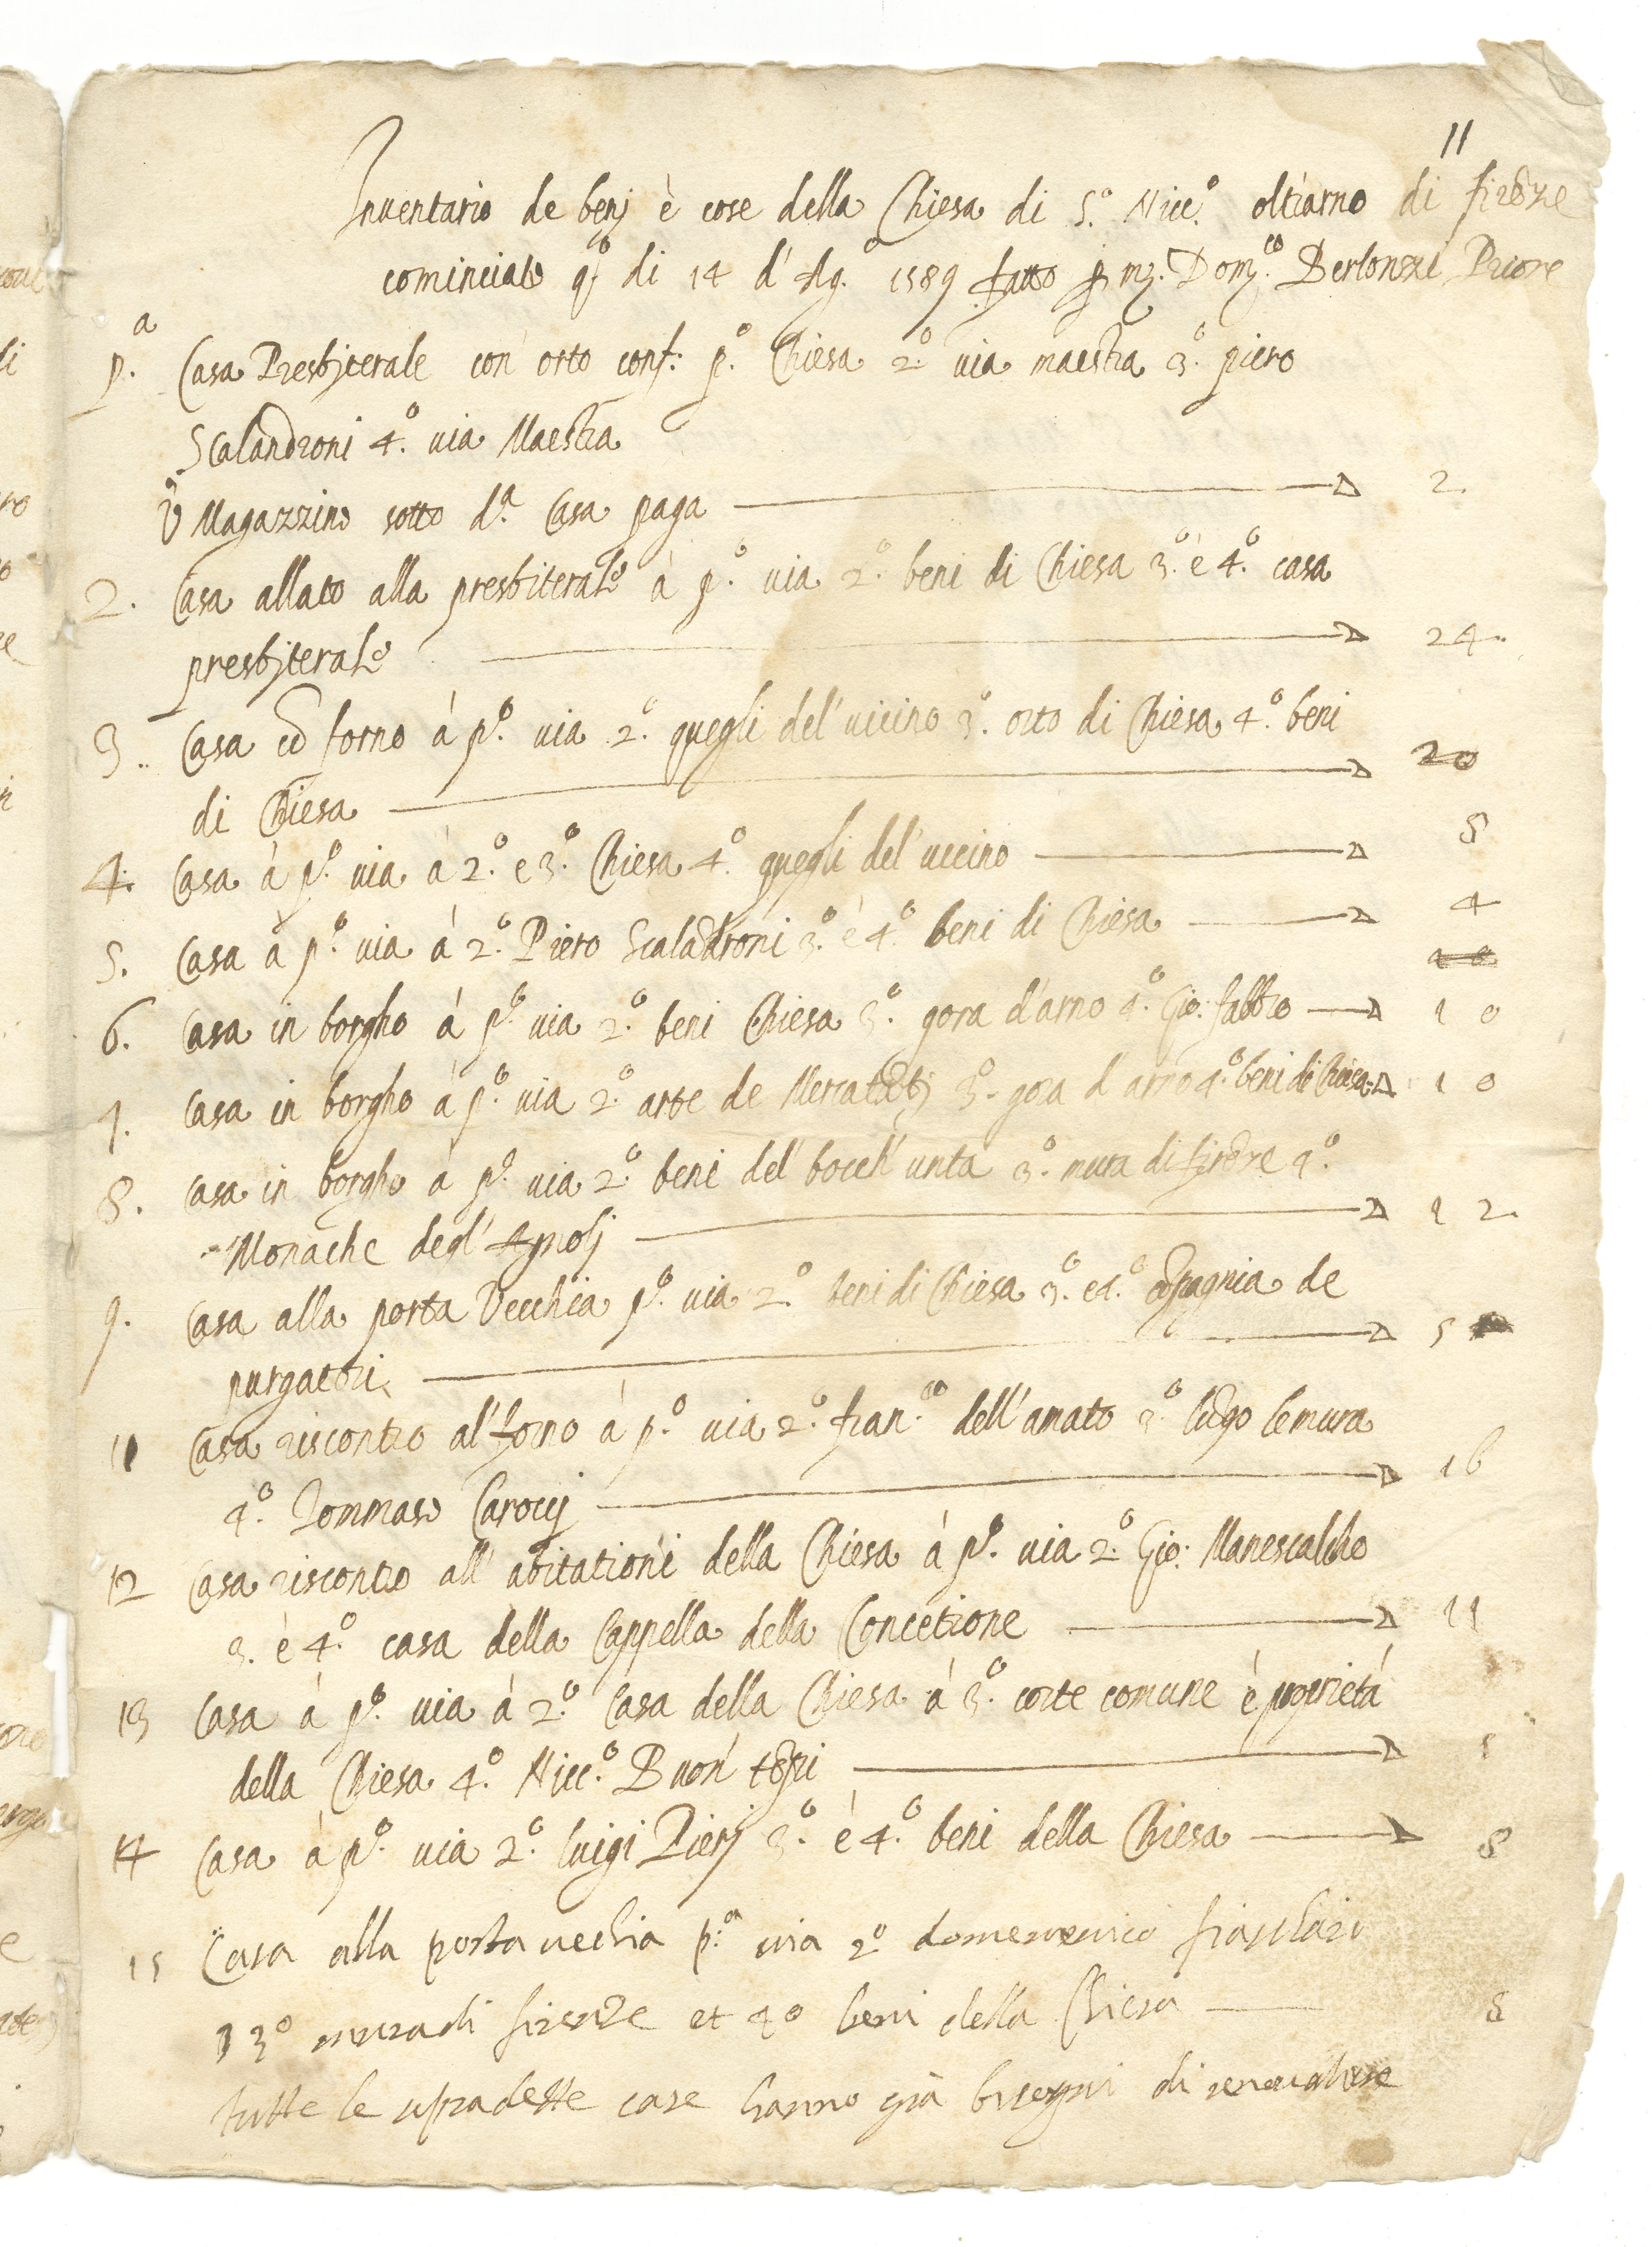 11
Inventario de benj è cose della Chiesa di S.º Nicc.º oltrarno di firēze
cominciato q.º di 14 d' Ag.º 1589 fatto p mz. Dom.co Berlonzi Priore
p.a Casa Presbjterale con orto conf: p.º Chiesa 2.º via maestra 3.º piero
Scalandroni 4.º via Maestra
Magazzino sotto d.a Casa paga 2.
2. Casa allato alla presbiterale à p.º via 2.º beni di Chiesa 3.º è 4.º casa
presbjterale 24.
3. Casa cō forno á p.º via 2.º quegli del' uccino 3.º orto di Chiesa 4.º beni
di Chiesa 20
4. Casa à p.º via á 2.º e 3.º Chiesa 4.º quegli del' uccino 8
5. Casa á p.º via á 2.º Piero Scalādroni 3.º è 4.º beni di Chiesa 4
6. Casa in borgho á p.º via 2.º beni Chiesa 3.º gora d'arno 4.º Gio: fabbro 10
7. Casa in borgho á p.º via 2.º arte de Mercatātj 3.º gora d'arno 4.º beni di Chiesa 10
8. Casa in borgho á p.º via 2.º beni del' bocch' unta 3.º mura di firēze 4.º
Monache degl' Agnolj 12.
9. Casa alla porta Vecchia p.º via 2.º beni di Chiesa 3.º e 4.º cōpagnia de
purgatori 5
11 Casa riscontro al' forno á p.º via 2.º fran.co dell' amato 3.º lūgo le mura
4.º Tommaso Caroccj 16
12 Casa riscontro all' abitationi della Chiesa á p.º via 2.º Gio: Manescalcho
3. è 4.º casa della Cappella della Concetione 11
13 Casa á p.º via á 2.º Casa della Chiesa á 3.º corte comune è proprietá
della Chiesa 4.º Nicc.º Buon' tēpi
14 Casa á p.º via 2.º luigi Pierj 3.º è 4.º beni della Chiesa 8
15 Casa alla porta vechia p.a via 2º domenenico fiaschaio
3º mura di firenze et 4º beni della Chiesa 8
tutte le sopradette case hanno già bisogni di